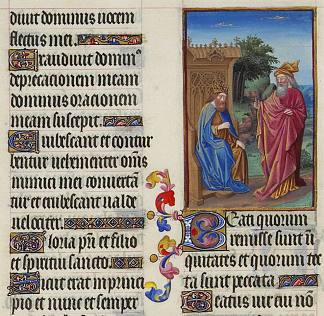 diuit dominus uocem
fletus mei.
Exaudiuit domin⁹
deprecacionem meam
dominus oracionem
meam suscepit.
Erubescant et contur
bentur uehementer om̃s
inimici mei conuertan
tur et erubescant ualde
uelociter.
Gloria pr̃i et filio
et spiritui sancto.
Sicut erat in princi
pio et nunc et semper
Beati quorum
remisse sunt ĩ
quitates et quorum tec
ta sunt peccata
Beatus uir cui nõ